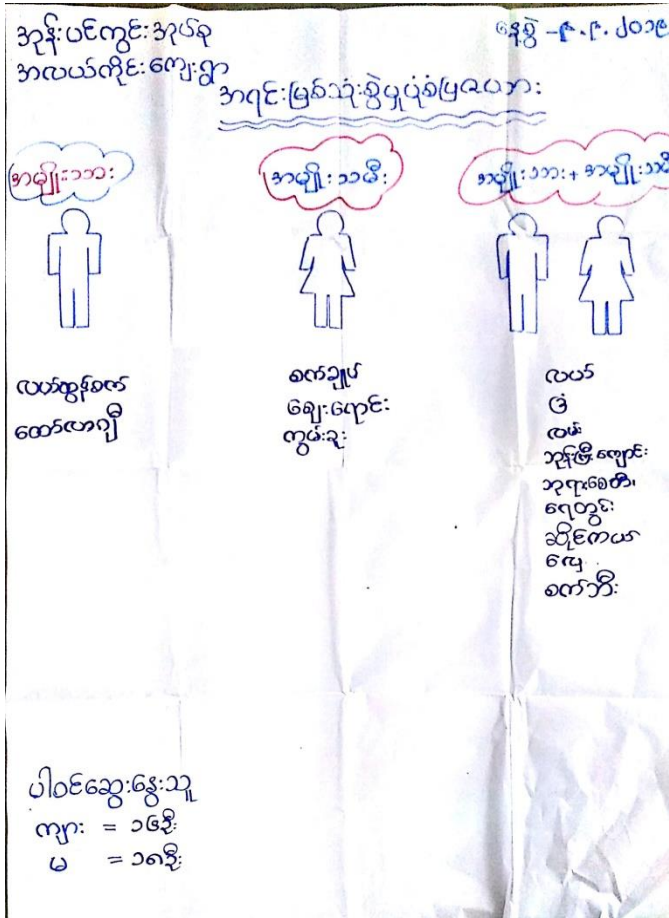 အုန်းပင်ကွင်းအုပ်စု
နေ့စွဲ -၉.၉.၂၀၁၉
အလယ်ကိုင်းကျေးရွာ
အရင်းမြစ်သုံးစွဲမှုပုံစံပြဇယား
အမျိုးသား
အမျိုးသမီး
အမျိုးသား + အမျိုးသမီး
လယ်ထွန်စက်
ထော်လာဂျီ
စက်ချုပ်
ဈေးရောင်း
ကွမ်းခူး
လယ်
ခြံ
လမ်း
ဘုန်းကြီးကျောင်း
ဘုရားစေတီ၊
ရေတွင်း
ဆိုင်ကယ်
လှေ
စက်ဘီး
ပါဝင်ဆွေးနွေးသူ
ကျား = ၁၆ဦး
မ = ၁၈ဦး